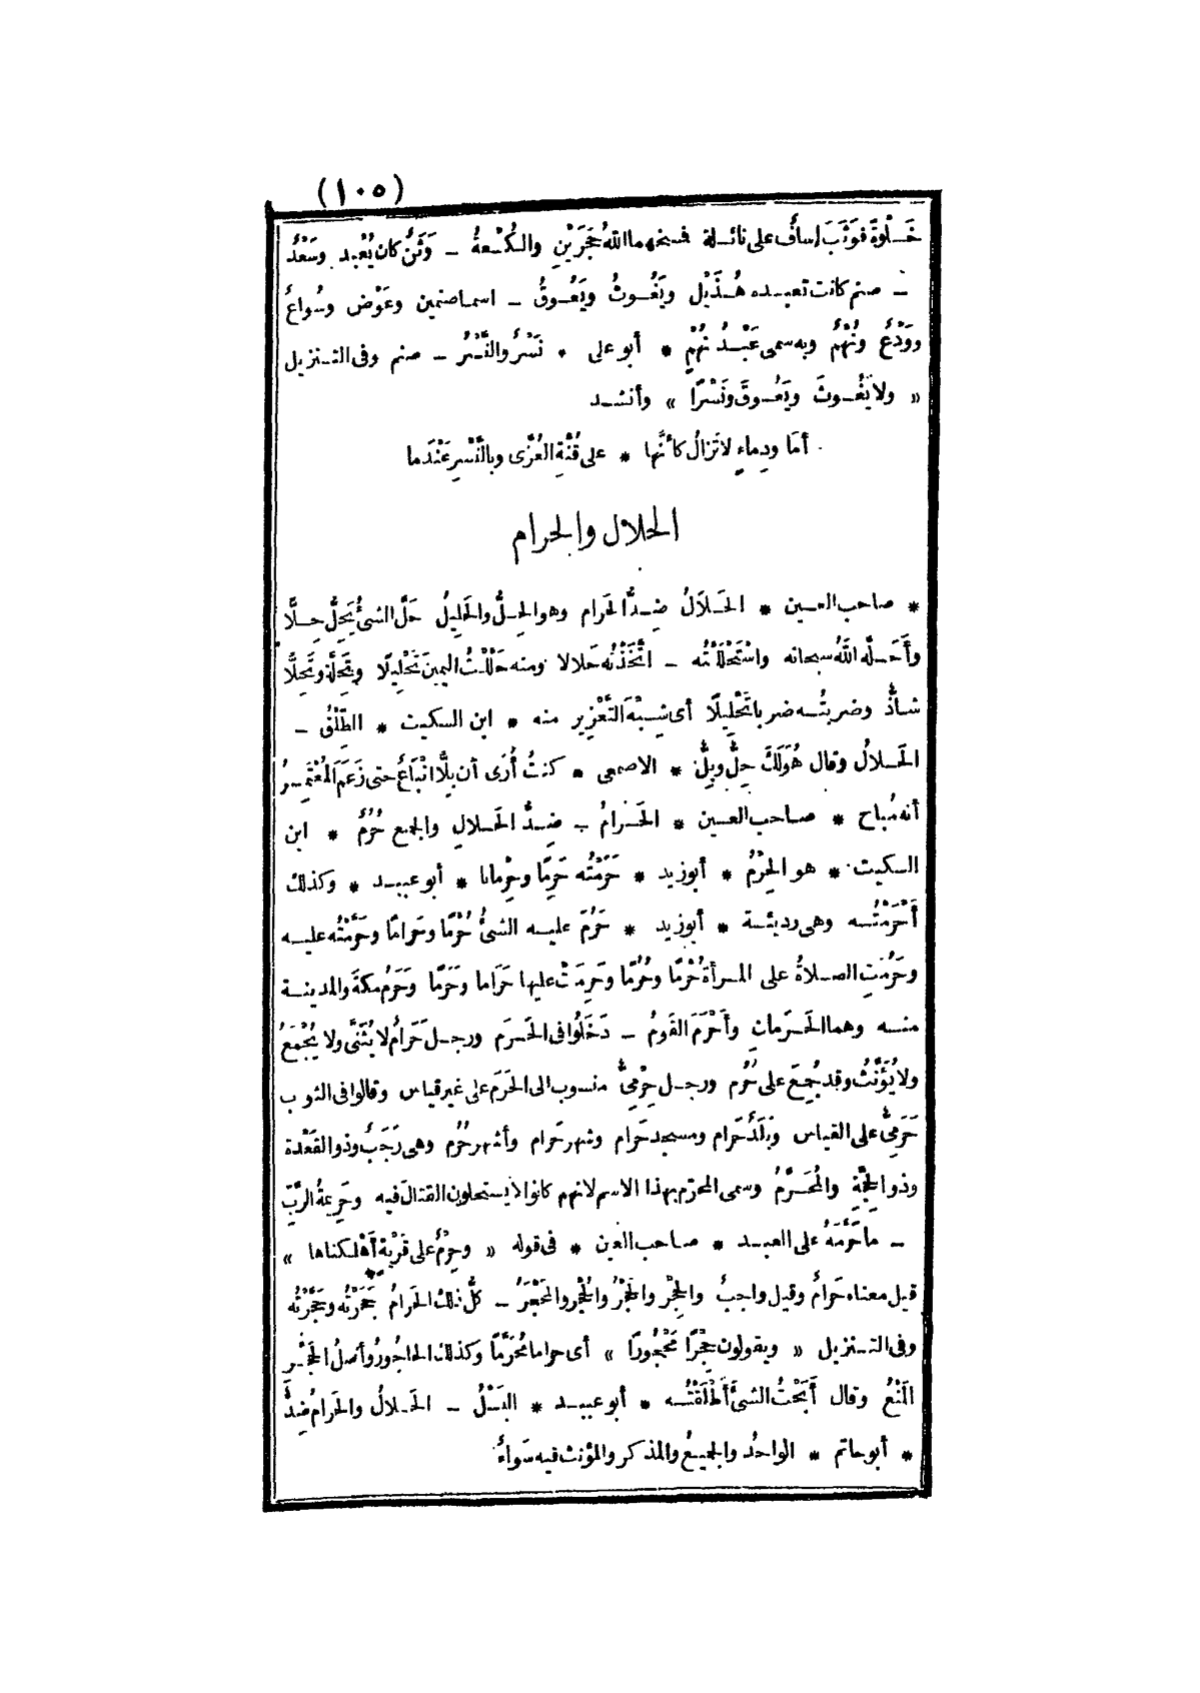 (١٠٥)
خَلْوةً فوَثَبَ إسافُ على نائلة فمسخهما اللهُ حَجَرَيْنِ والكُسْعةُ ـ وَثَنٌ كان يُعْبد وسَعْدٌ
ـ صنم كانت تعبده هُذَيْل ويَغُوثُ ويَعُوقُ ـ اسما صنمين وعَوْض وسُواعٌ
ووَدْعٌ ونُهْمٌ وبه سمى عَبْدُ نُهْمٍ * أبو على * نَسْرٌ والنَّسْرُ ـ صنم وفى التنزيل
« ولا يَغُوثَ ويَعُوقَ ونَسْرًا » وأنشد
أمَا ودِماءٍ لا تَزالُ كأنَّها * على قُنَّةِ العُزَّى وبالنَّسْرِ عَنْدَما
الحلال والحرام
* صاحب العين * الحَلَالُ ضِدُّ الحَرام وهو الحِلُّ والحَلِيلُ حَلَّ الشئُ يَحِلُّ حِلًّا
وأَحَلَّه اللهُ سبحانه واسْتَحْلَلْتُه ـ اتَّخَذْتُه حَلالا ومنه حَلَّلْتُ اليمينَ تَحْلِيلًا وتَحِلَّةً وتَحِلًّا
شاذٌّ وضربتُه ضربا تَحْلِيلًا أى شِبْهَ التَّعْزِير منه * ابن السكيت * الطِّلْقُ ـ
الحَلالُ وقال هُوَلَكَ حِلٌّ وبِلٌّ * الاصمعى * كنتُ أُرَى أن بِلًّا اتْباعٌ حتى زَعَمَ المُعْتَمِرُ
أنه مُباح * صاحب العين * الحَرامُ ـ ضِدُّ الحَلالِ والجمع حُرُمٌ * ابن
السكيت * هو الحِرْمُ * أبوزيد * حَرَمْتُه حَرِمًا وحِرْمانا * أبو عبيد * وكذلك
أَحْرَمْتُه وهى رديئة * أبوزيد * حَرُمَ عليه الشئُ حُرْمًا وحَرامًا وحَرَّمْتُه عليه
وحَرُمَتِ الصلاةُ على المرأة حُرْمًا وحُرُمًا وحَرِمَتْ عليها حَرَاما وحَرَمًا وحَرَمُ مكةَ والمدينة
منه وهما الحَرَمانِ وأَحْرَمَ القَومُ ـ دَخَلُوا فى الحَرَم ورجل حَرامٌ لا يُثَنَّى ولا يُجْمَعُ
ولا يُؤَنَّثُ وقد جُمِعَ على حُرُم ورجل حِرْمِىٌّ منسوب الى الحَرَم على غير قياس وقالوا فى الثوب
حَرَمِىٌّ على القياس وبَلَدٌ حَرام ومسجد حَرام وشهر حَرام وأشهر حُرُم وهى رَجَبٌ وذو القَعْدة
وذو الحِجَّةِ والمُحَرَّمُ وسمى المحرّم بهذا الاسم لانهم كانوا لا يستحلون القتالَ فيه وحَرِيمةُ الرَّبِّ
ـ ما حَرَّمَهُ على العبد * صاحب العين * فى قوله « وحِرْمٌ على قَرْيةٍ أَهْلكناها »
قيل معناه حَرامٌ وقيل واجبٌ والحِجْر والحَجْرُ والحُجْر والمَحْجَرُ ـ كلُّ ذلك الحَرامُ حَجَرْتُه وحَجَّرْتُه
وفى التنزيل « ويقولون حِجْرًا مَحْجُورًا » أى حراما مُحَرَّمًا وكذلك الحاجُورُ وأصلُ الحَجْر
المَنْعُ وقال أَبَحْتُ الشئَ أَطْلَقْتُه * أبو عبيد * البَسْلُ ـ الحَلالُ والحَرامُ ضِدٌّ
* أبو حاتم * الواحدُ والجميعُ والمذكر والمؤنث فيه سَواءٌ